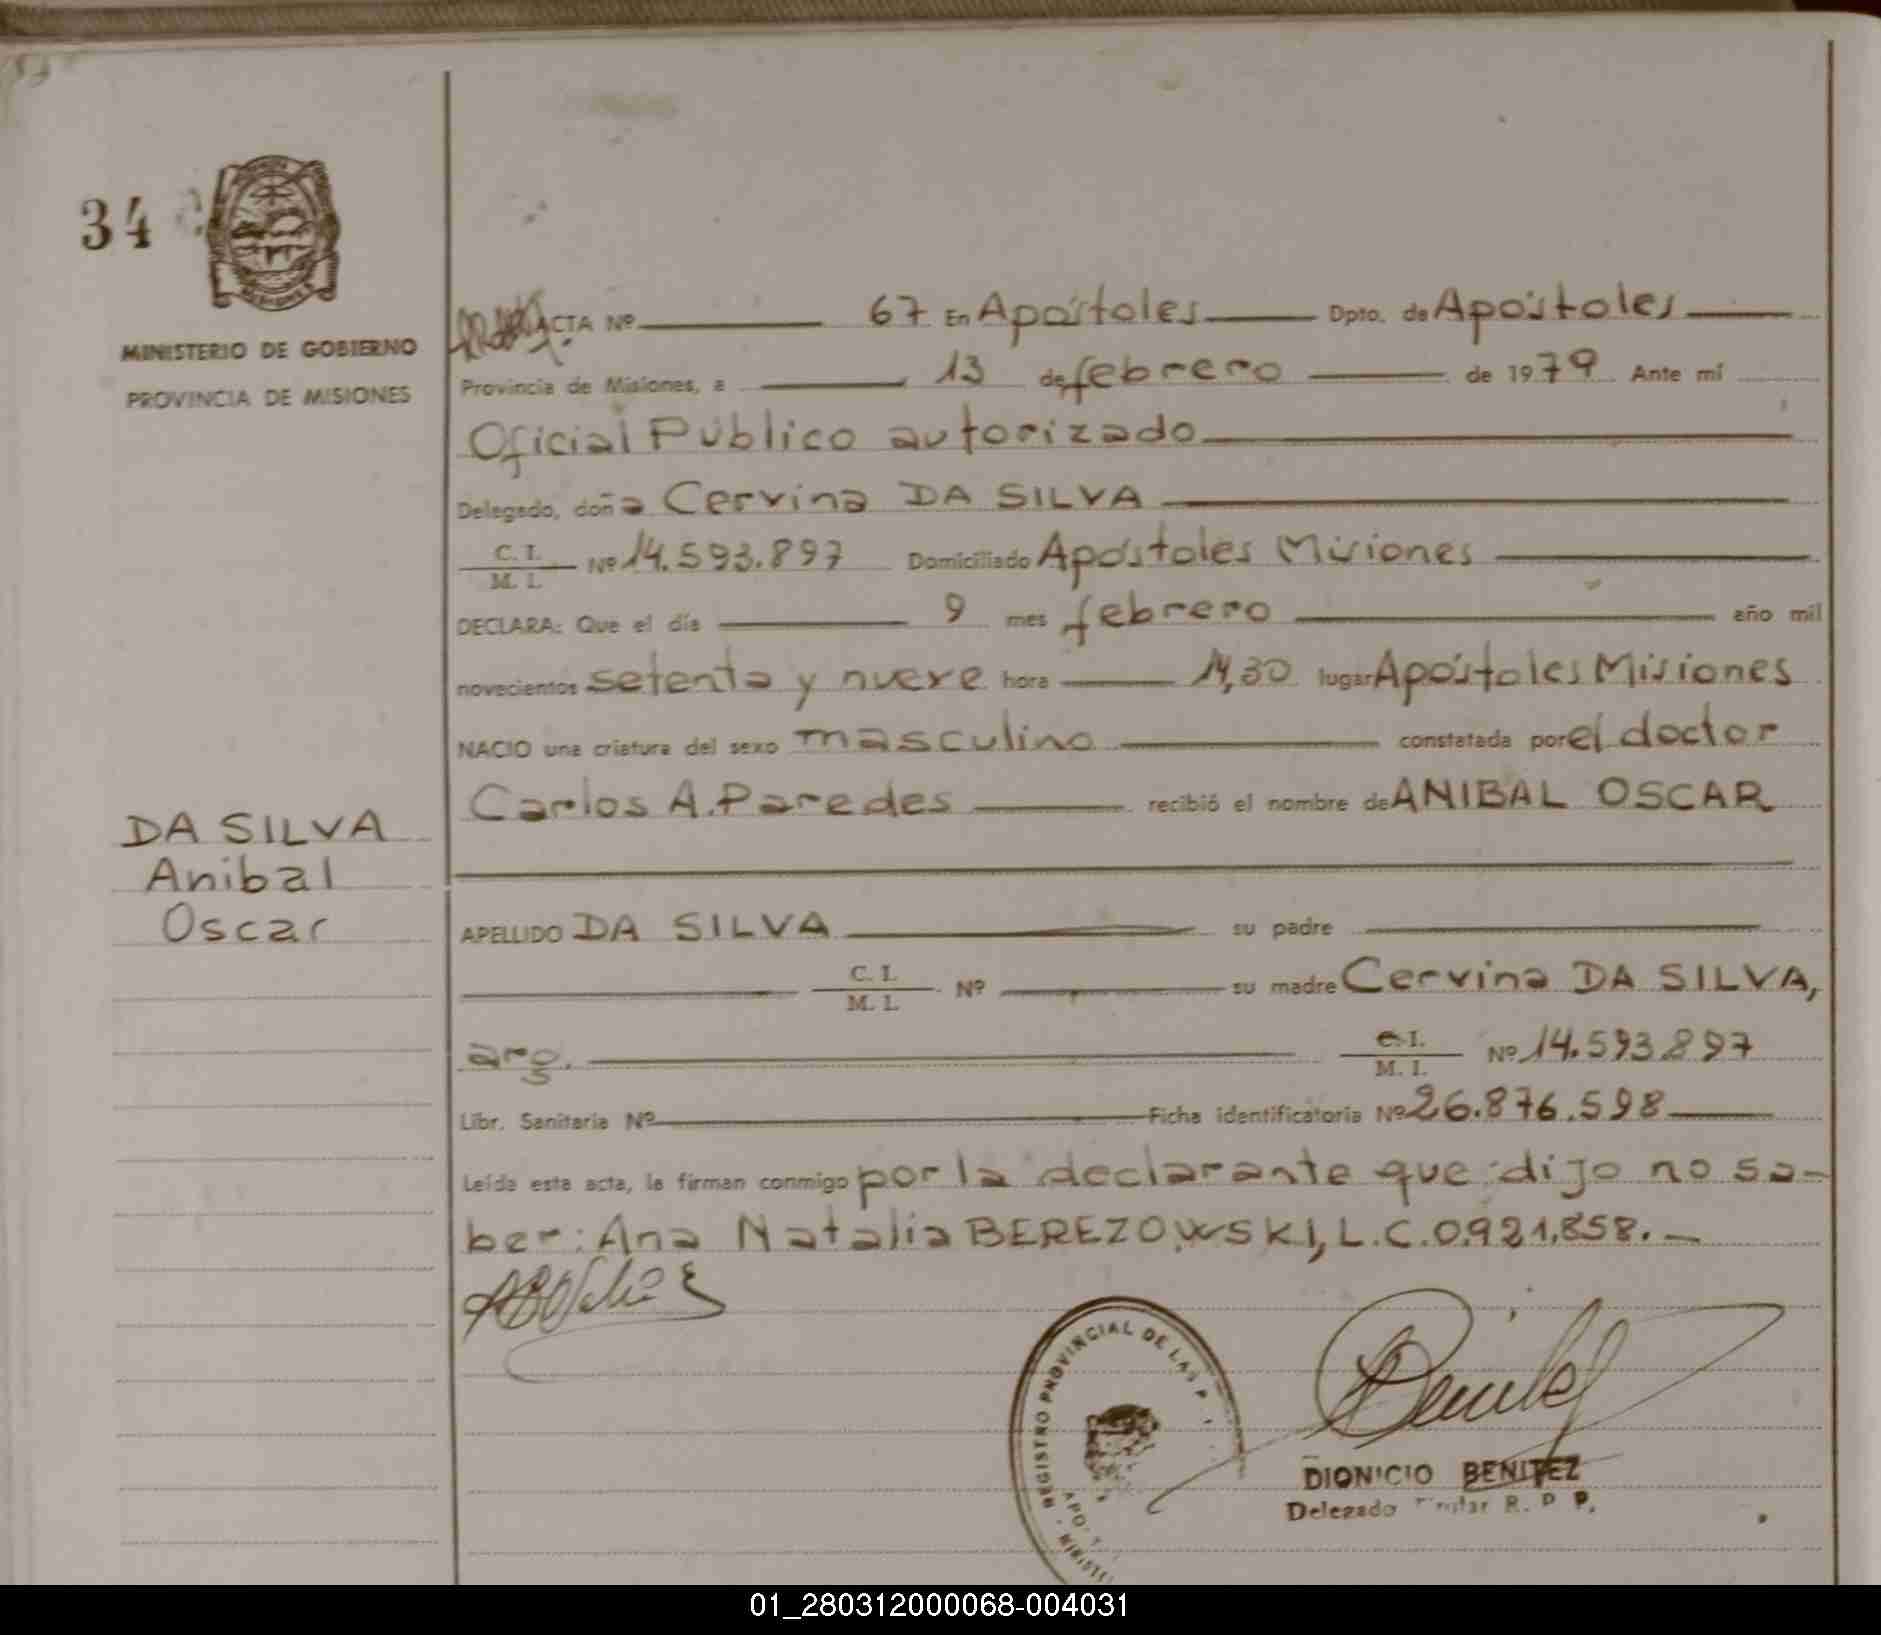 34
MINISTERIO DE GOBIERNO
PROVINCIA DE MISIONES
DA SILVA
Anibal
Oscar
ACTA Nº 67 En Apóstoles Dpto. de Apóstoles
Provincia de Misiones, a 13 de febrero de 1979 Ante mí
Oficial Público autorizado
Delegado, doña Cervina DA SILVA
C. I. / M. I. Nº 14.593.897 Domiciliado Apóstoles Misiones
DECLARA: Que el día 9 mes febrero año mil
novecientos setenta y nueve hora 14,30 lugar Apóstoles Misiones
NACIO una criatura del sexo masculino constatada por el doctor
Carlos A. Paredes recibió el nombre de ANIBAL OSCAR
APELLIDO DA SILVA su padre
C. I. / M. I. Nº su madre Cervina DA SILVA,
arg. C. I. / M. I. Nº 14.593.897
Libr. Sanitaria Nº Ficha identificatoria Nº 26.876.598
Leída esta acta, la firman conmigo por la declarante que dijo no sa-
ber: Ana Natalia BEREZOWSKI, L.C.0.921.858.
REGISTRO PROVINCIAL DE LAS P
DIONICIO BENITEZ
Delegado Titular R. P. P.
01_280312000068-004031